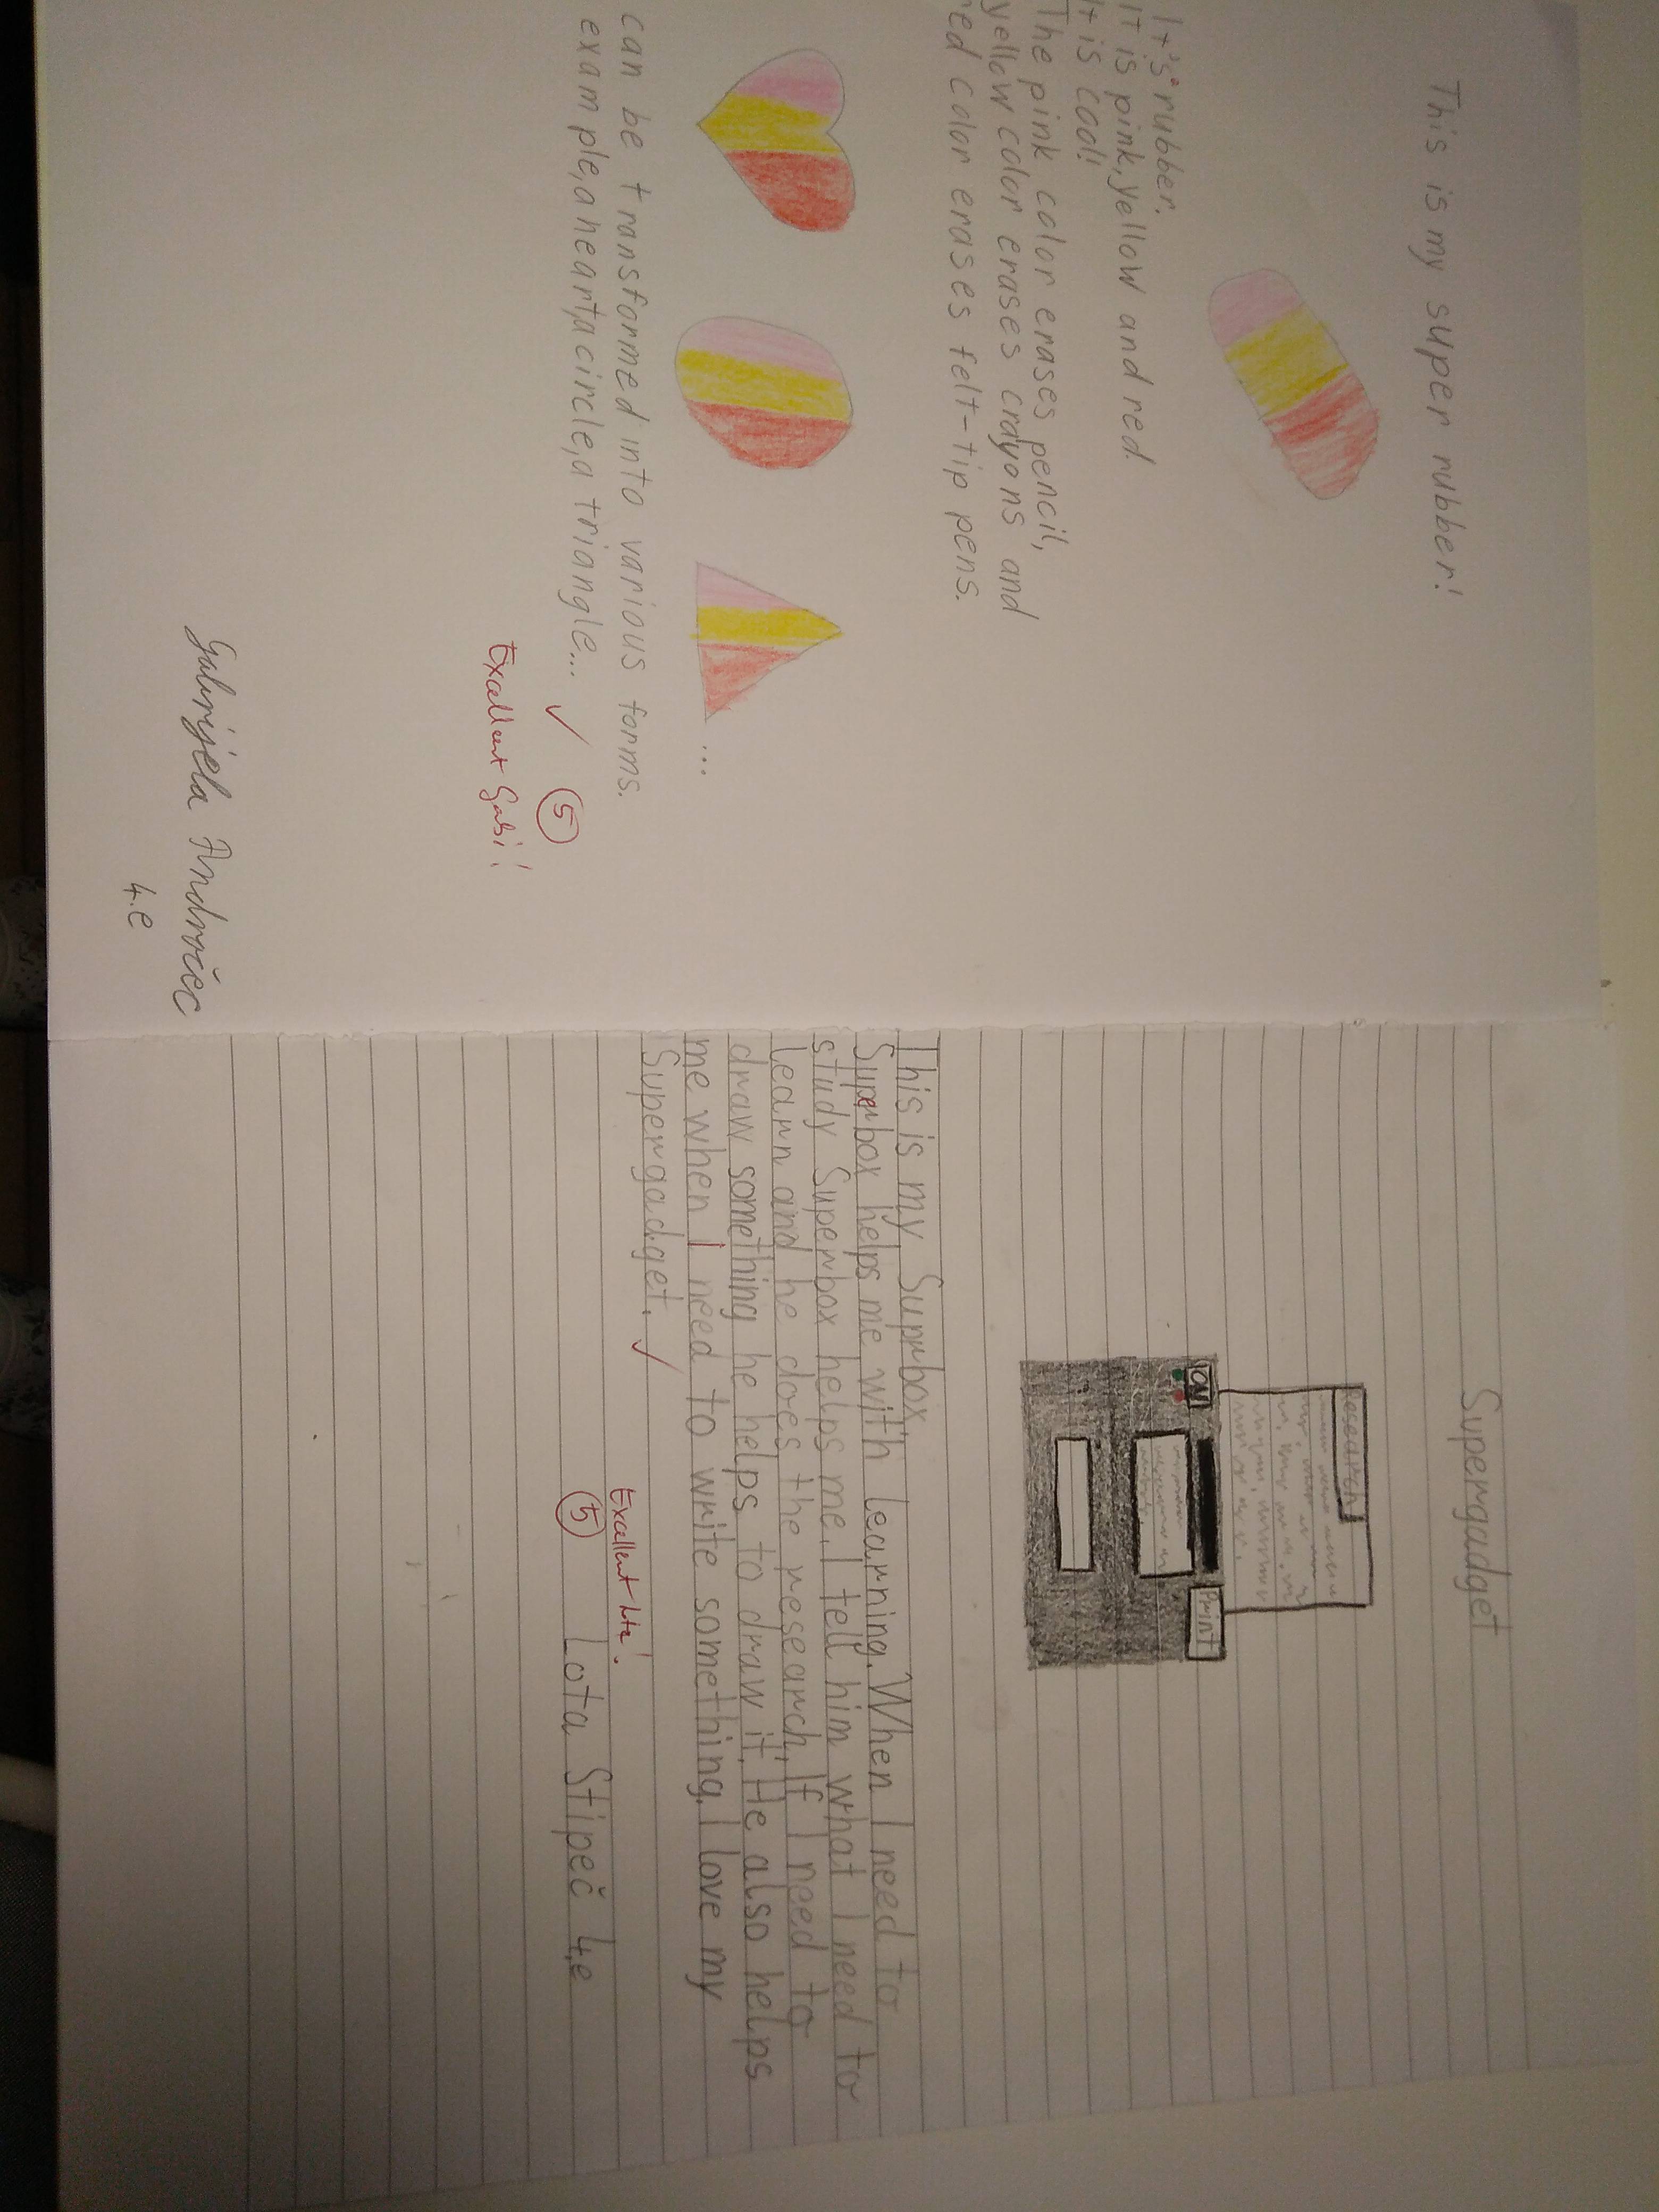 This is my super rubber!
It's rubber.
It is pink, yellow and red.
It is cool!
The pink color erases pencil,
yellow color erases crayons and
red color erases felt-tip pens.
...
can be transformed into various forms.
example, a heart, a circle, a triangle...
5
Excellent Gabi!
Gabrijela Andročec
4.e
Supergadget
research
ON
Print
This is my Suprbox.
Superbox helps me with learning. When I need to
study Superbox helps me. I tell him what I need to
learn and he does the research. If I need to
draw something he helps to draw it. He also helps
me when I need to write something. I love my
Supergadget.
Excellent
5
Lota Stipeč 4.e